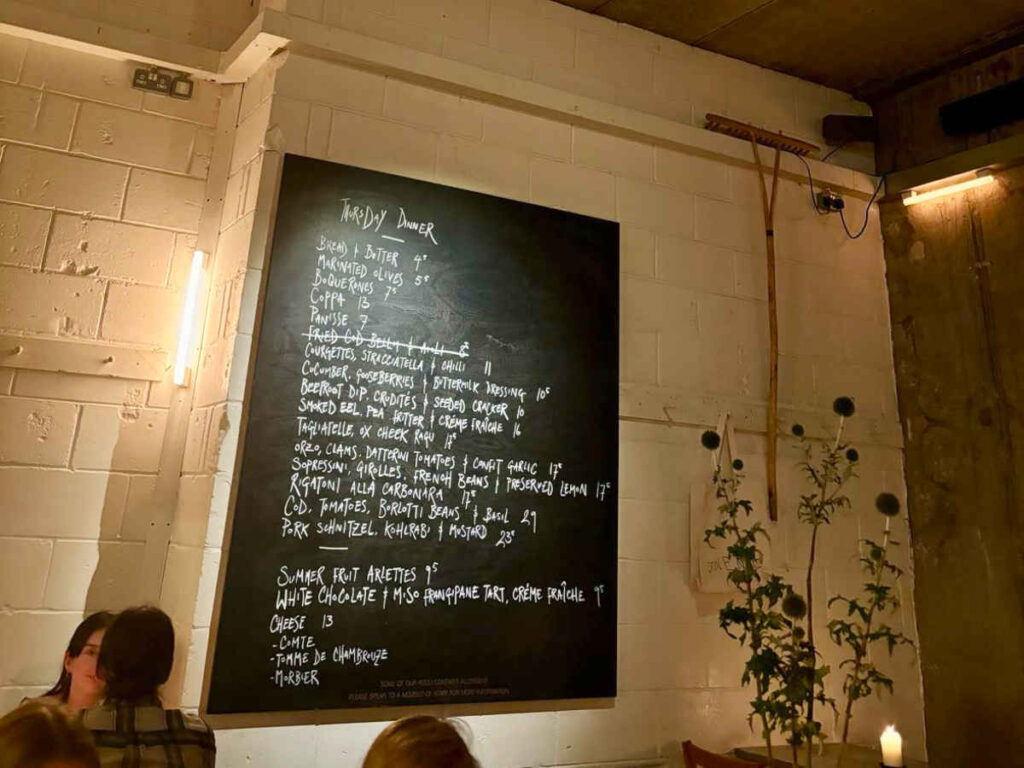 THURSDAY DINNER
BREAD & BUTTER 4⁵
MARINATED OLIVES 5⁵
BOQUERONES 7⁵
COPPA 13
PANISSE 7
FRIED COD BELLY & AIOLI
COURGETTES, STRACCIATELLA & CHILLI 11
CUCUMBER, GOOSEBERRIES & BUTTERMILK DRESSING 10⁵
BEETROOT DIP, CRUDITÉS & SEEDED CRACKER 10
SMOKED EEL, PEA FRITTER & CRÈME FRAÎCHE 16
TAGLIATELLE, OX CHEEK RAGU
ORZO, CLAMS, DATTERINI TOMATOES & CONFIT GARLIC 17⁵
SOPRESSINI, GIROLLES, FRENCH BEANS & PRESERVED LEMON 17⁵
RIGATONI ALLA CARBONARA 17⁵
COD, TOMATOES, BORLOTTI BEANS & BASIL 29
PORK SCHNITZEL, KOHLRABI & MUSTARD 23⁵
SUMMER FRUIT ARLETTES 9⁵
WHITE CHOCOLATE & MISO FRANGIPANE TART, CRÉME FRAÎCHE 9⁵
CHEESE 13
-COMTE
-TOMME DE CHAMBROUZE
-MORBIER
SOME OF OUR FOOD CONTAINS ALLERGENS
PLEASE SPEAK TO A MEMBER OF STAFF FOR MORE INFORMATION